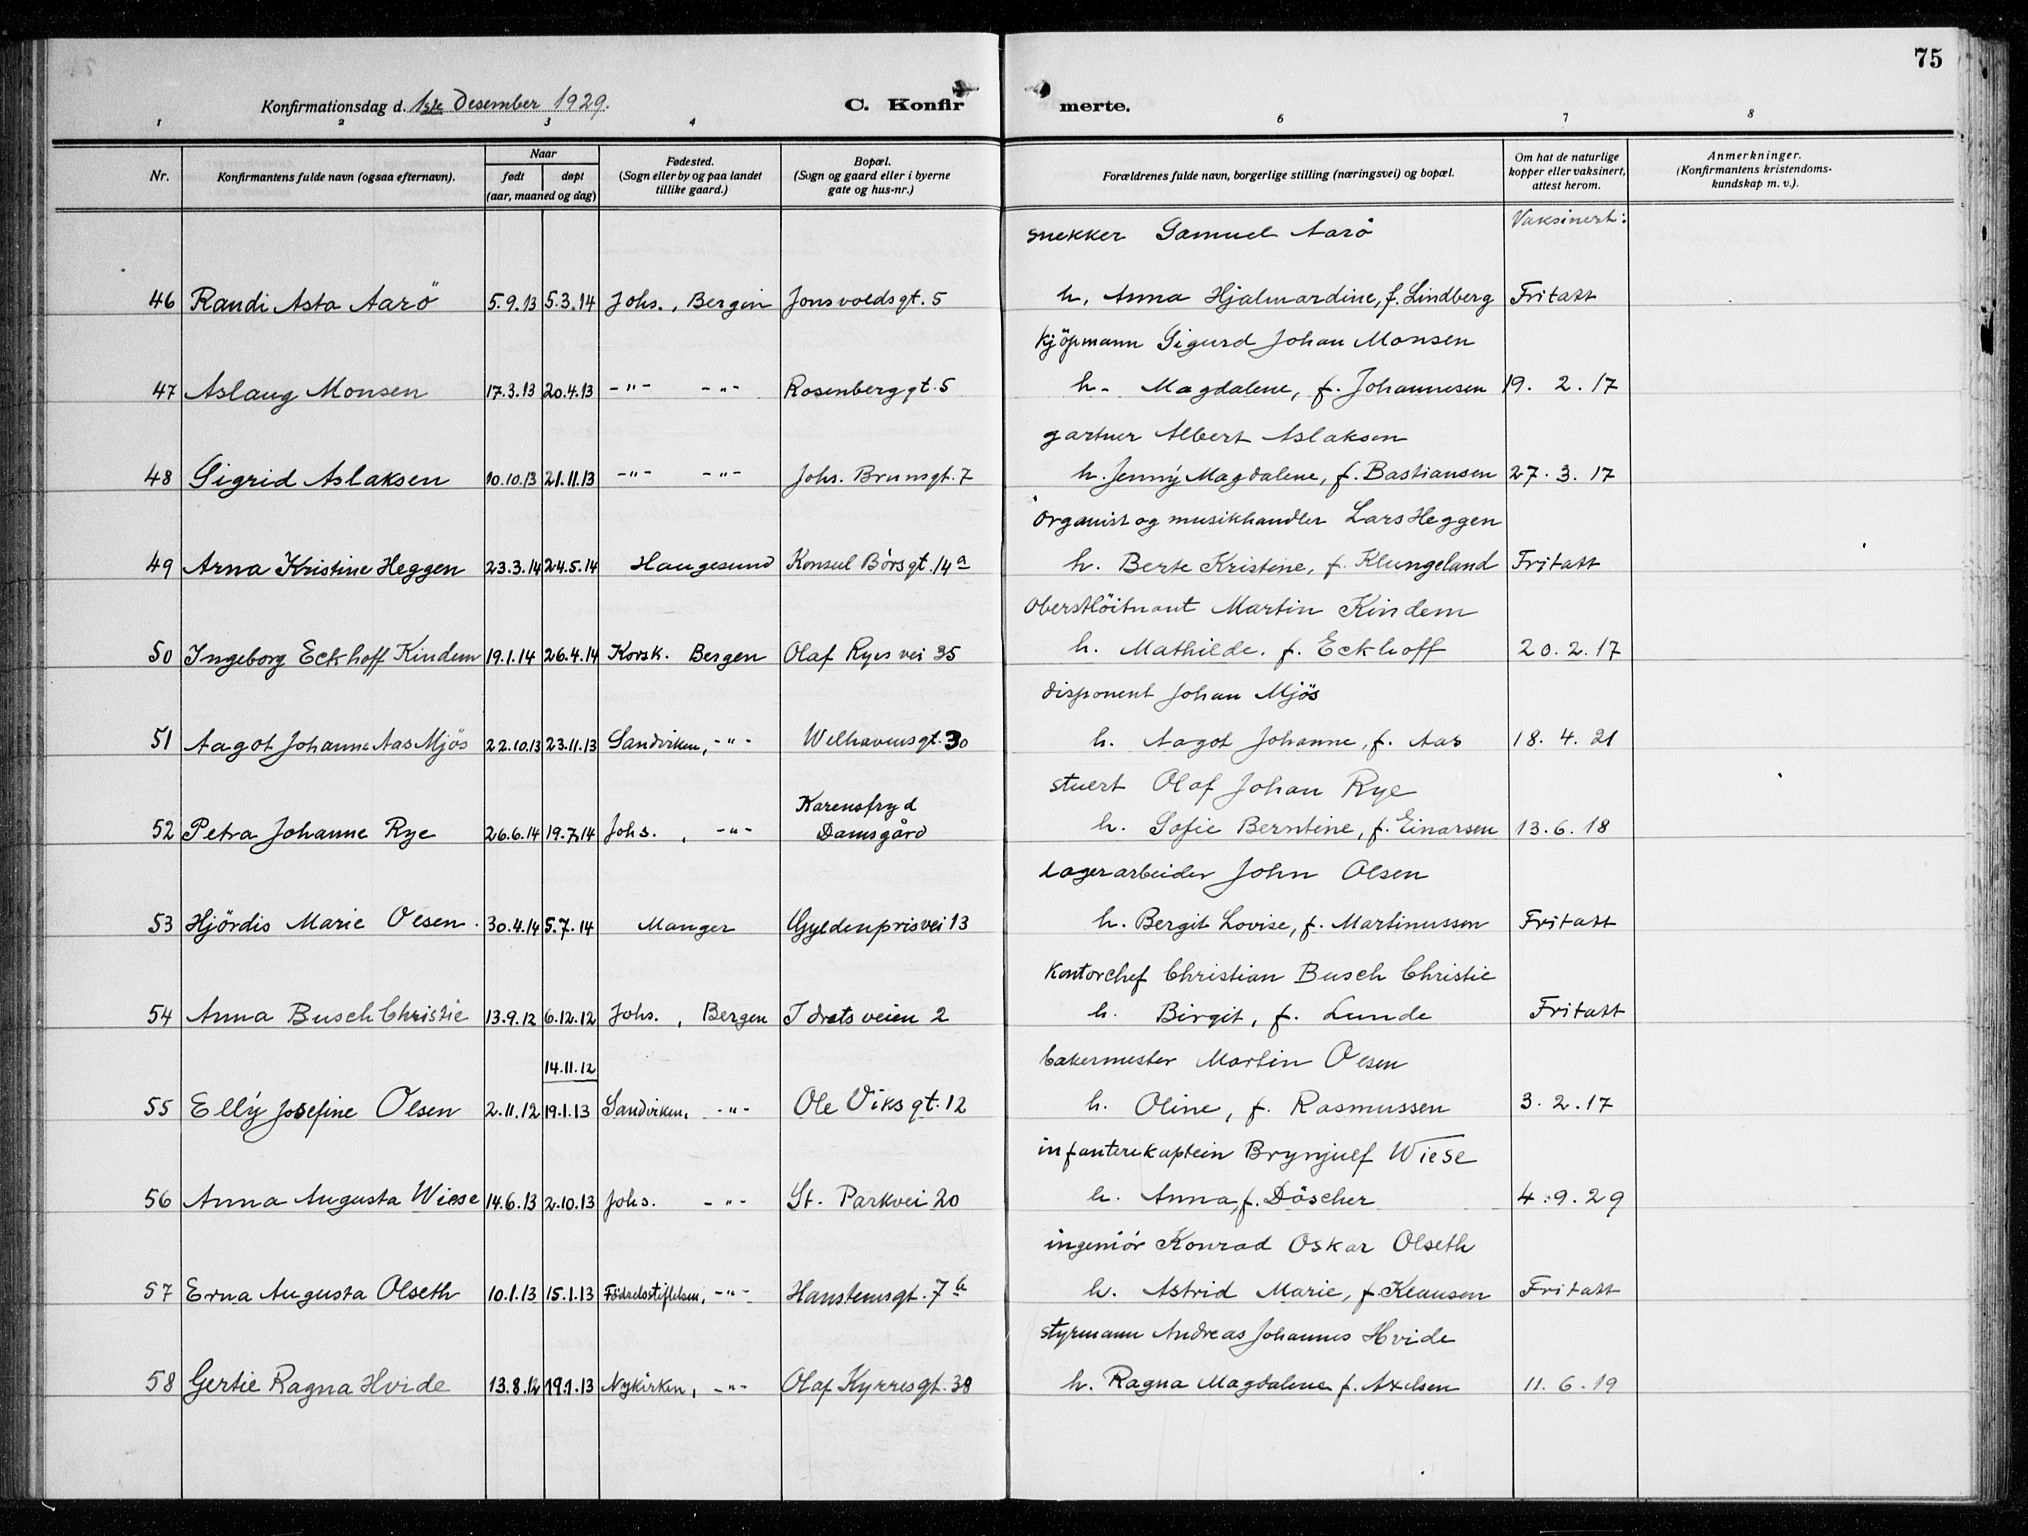 75
Konfirmationsdag d. 1ste Desember 1929.
C. Konfirmerte.
1 2 3 4 6 7 8
Nr. Konfirmantens fulde navn (ogsaa efternavn). Naar født døpt (aar, maaned og dag) Fødested. (Sogn eller by og paa landet tillike gaard.) Bopæl. (Sogn og gaard eller i byerne gate og hus-nr.) Forældrenes fulde navn, borgerlige stilling (næringsvei) og bopæl. Om hat de naturlige kopper eller vaksinert, attest herom. Anmerkninger. (Konfirmantens kristendomskundskap m. v.).
Vaksinert:
snekker Samuel Aarö
46 Randi Asta Aarö 5.9.13 5.3.14 Johs., Bergen Jonsvoldsgt. 5 h. Anna Hjalmardine, f. Lindberg Fritatt
kjöpmann Sigurd Johan Monsen
47 Aslaug Monsen 17.3.13 20.4.13 -"- -"- Rosenberggt. 5 h. Magdalene, f. Johannesen 19. 2. 17
gartner Albert Aslaksen
48 Sigrid Aslaksen 10.10.13 21.11.13 -"- -"- Johs. Brunsgt. 7 h. Jenny Magdalene, f. Bastiansen 27. 3. 17
organist og musikhandler Lars Heggen
49 Arna Kristine Heggen 23.3.14 24.5.14 Haugesund Konsul Börsgt. 14a h. Berte Kristine, f. Klungeland Fritatt
Oberstlöitnant Martin Kindem
50 Ingeborg Eckhoff Kindem 19.1.14 26.4.14 Korsk. Bergen Olaf Ryes vei 35 h. Mathilde. f. Eckhoff 20. 2. 17
disponent Johan Mjös
51 Aagot Johanne Aas Mjös 22.10.13 23.11.13 Sandviken, -"- Welhavensgt. 30 h. Aagot Johanne, f. Aas 18. 4. 21
stuert Olaf Johan Rye
Karensfryd
52 Petra Johanne Rye 26.6.14 19.7.14 Johs., -"- Damsgård h. Sofie Berntine, f. Einarsen 13. 6. 18
Lagerarbeider John Olsen
53 Hjördis Marie Olsen. 30.4.14 5.7.14 Manger Gyldenprisvei 13 h. Bergit Lovise, f. Martinussen Fritatt
Kontorchef Christian Busch Christie
54 Anna Busch Christie 13.9.12 6.12.12 Johs., Bergen Idrætsveien 2 h. Birgit, f. Lunde Fritatt
14.11.12 bakermester Martin Olsen
55 Elly Josefine Olsen 2.11.12 19.1.13 Sandviken, -"- Ole Viksgt. 12 h. Oline, f. Rasmussen 3. 2. 17
infanterikaptein Brynjulf Wiese
56 Anna Augusta Wiese 14.6.13 2.10.13 Johs. -"- St. Parkvei 20 h. Anna, f. Döscher 4. 9. 29
ingeniör Konrad Oskar Olseth
57 Erna Augusta Olseth 10.1.13 15.1.13 Födselsstiftelsen, -"- Hansteensgt. 7b h. Astrid Marie, f. Klausen Fritatt
styrmann Andreas Johannes Hvide
58 Gertie Ragna Hvide 13.8.12 19.1.13 Nykirken, -"- Olaf Kyrresgt. 38 h. Ragna Magdalene f. Axelsen 11. 6. 19